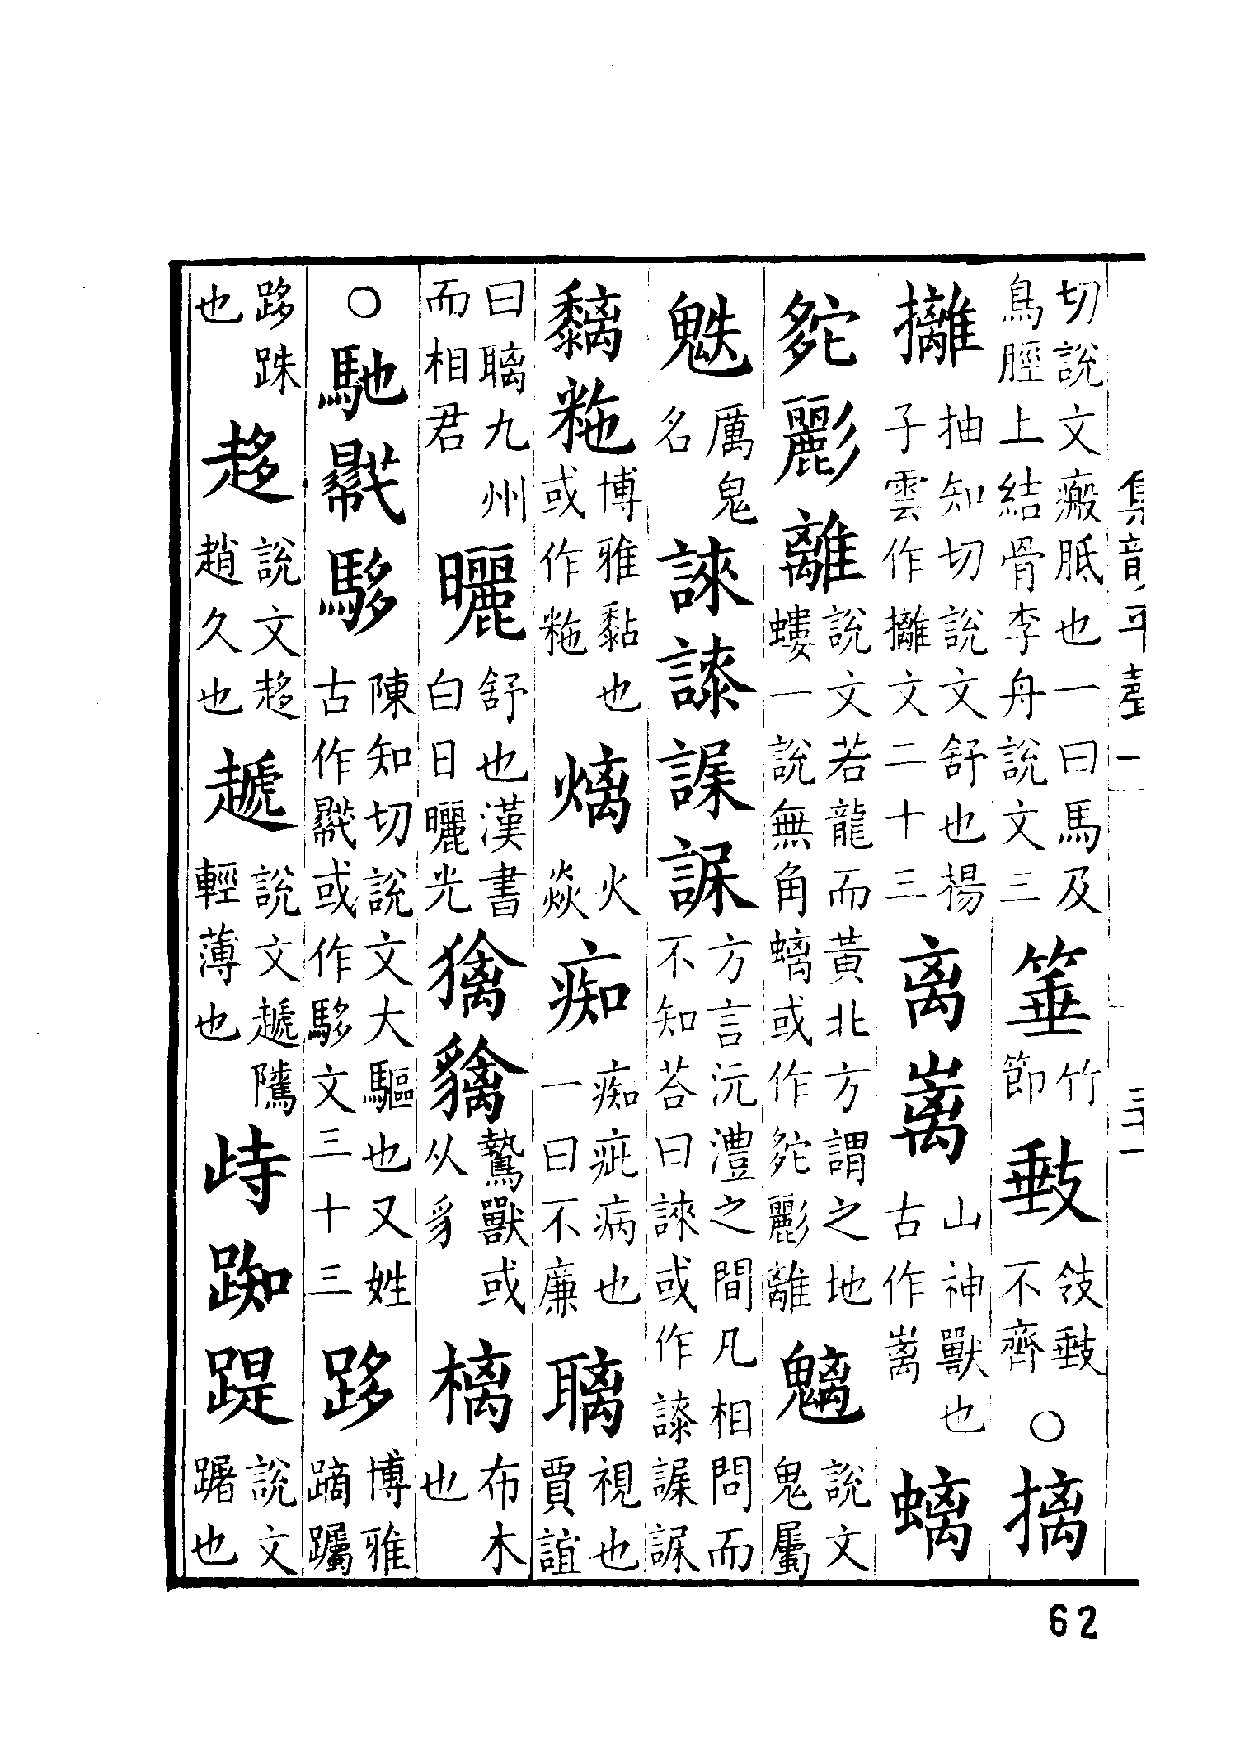 集韻平聲一 三十一
切說文瘢胝也一曰馬及鳥脛上結骨李舟說文三 箠 竹節 不齊 ○ 摛
攡 抽知切說文舒也揚子雲作攡文二十三 离 山神獸也古作 螭
彲 離 說文若龍而黃北方謂之地螻一說無角螭或作彲離 魑 說文鬼屬
厲鬼名 誺 方言沅澧之間凡相問而不知荅曰誺或作
黐 粚 博雅黏也或作粚 火焱 痴 痴疵病也一曰不廉 瞝 視也賈誼
曰瞝九州而相君 曬 舒也漢書白日曬光 鷙獸或从豸 樆 布木也
○ 馳 陳知切說文大驅也又姓古作或作文三十三 跢 博雅蹢躅
跢跦也 趍 說文趍趙久也 說文騭輕薄也 歭 踟 踶 說文躇也
62